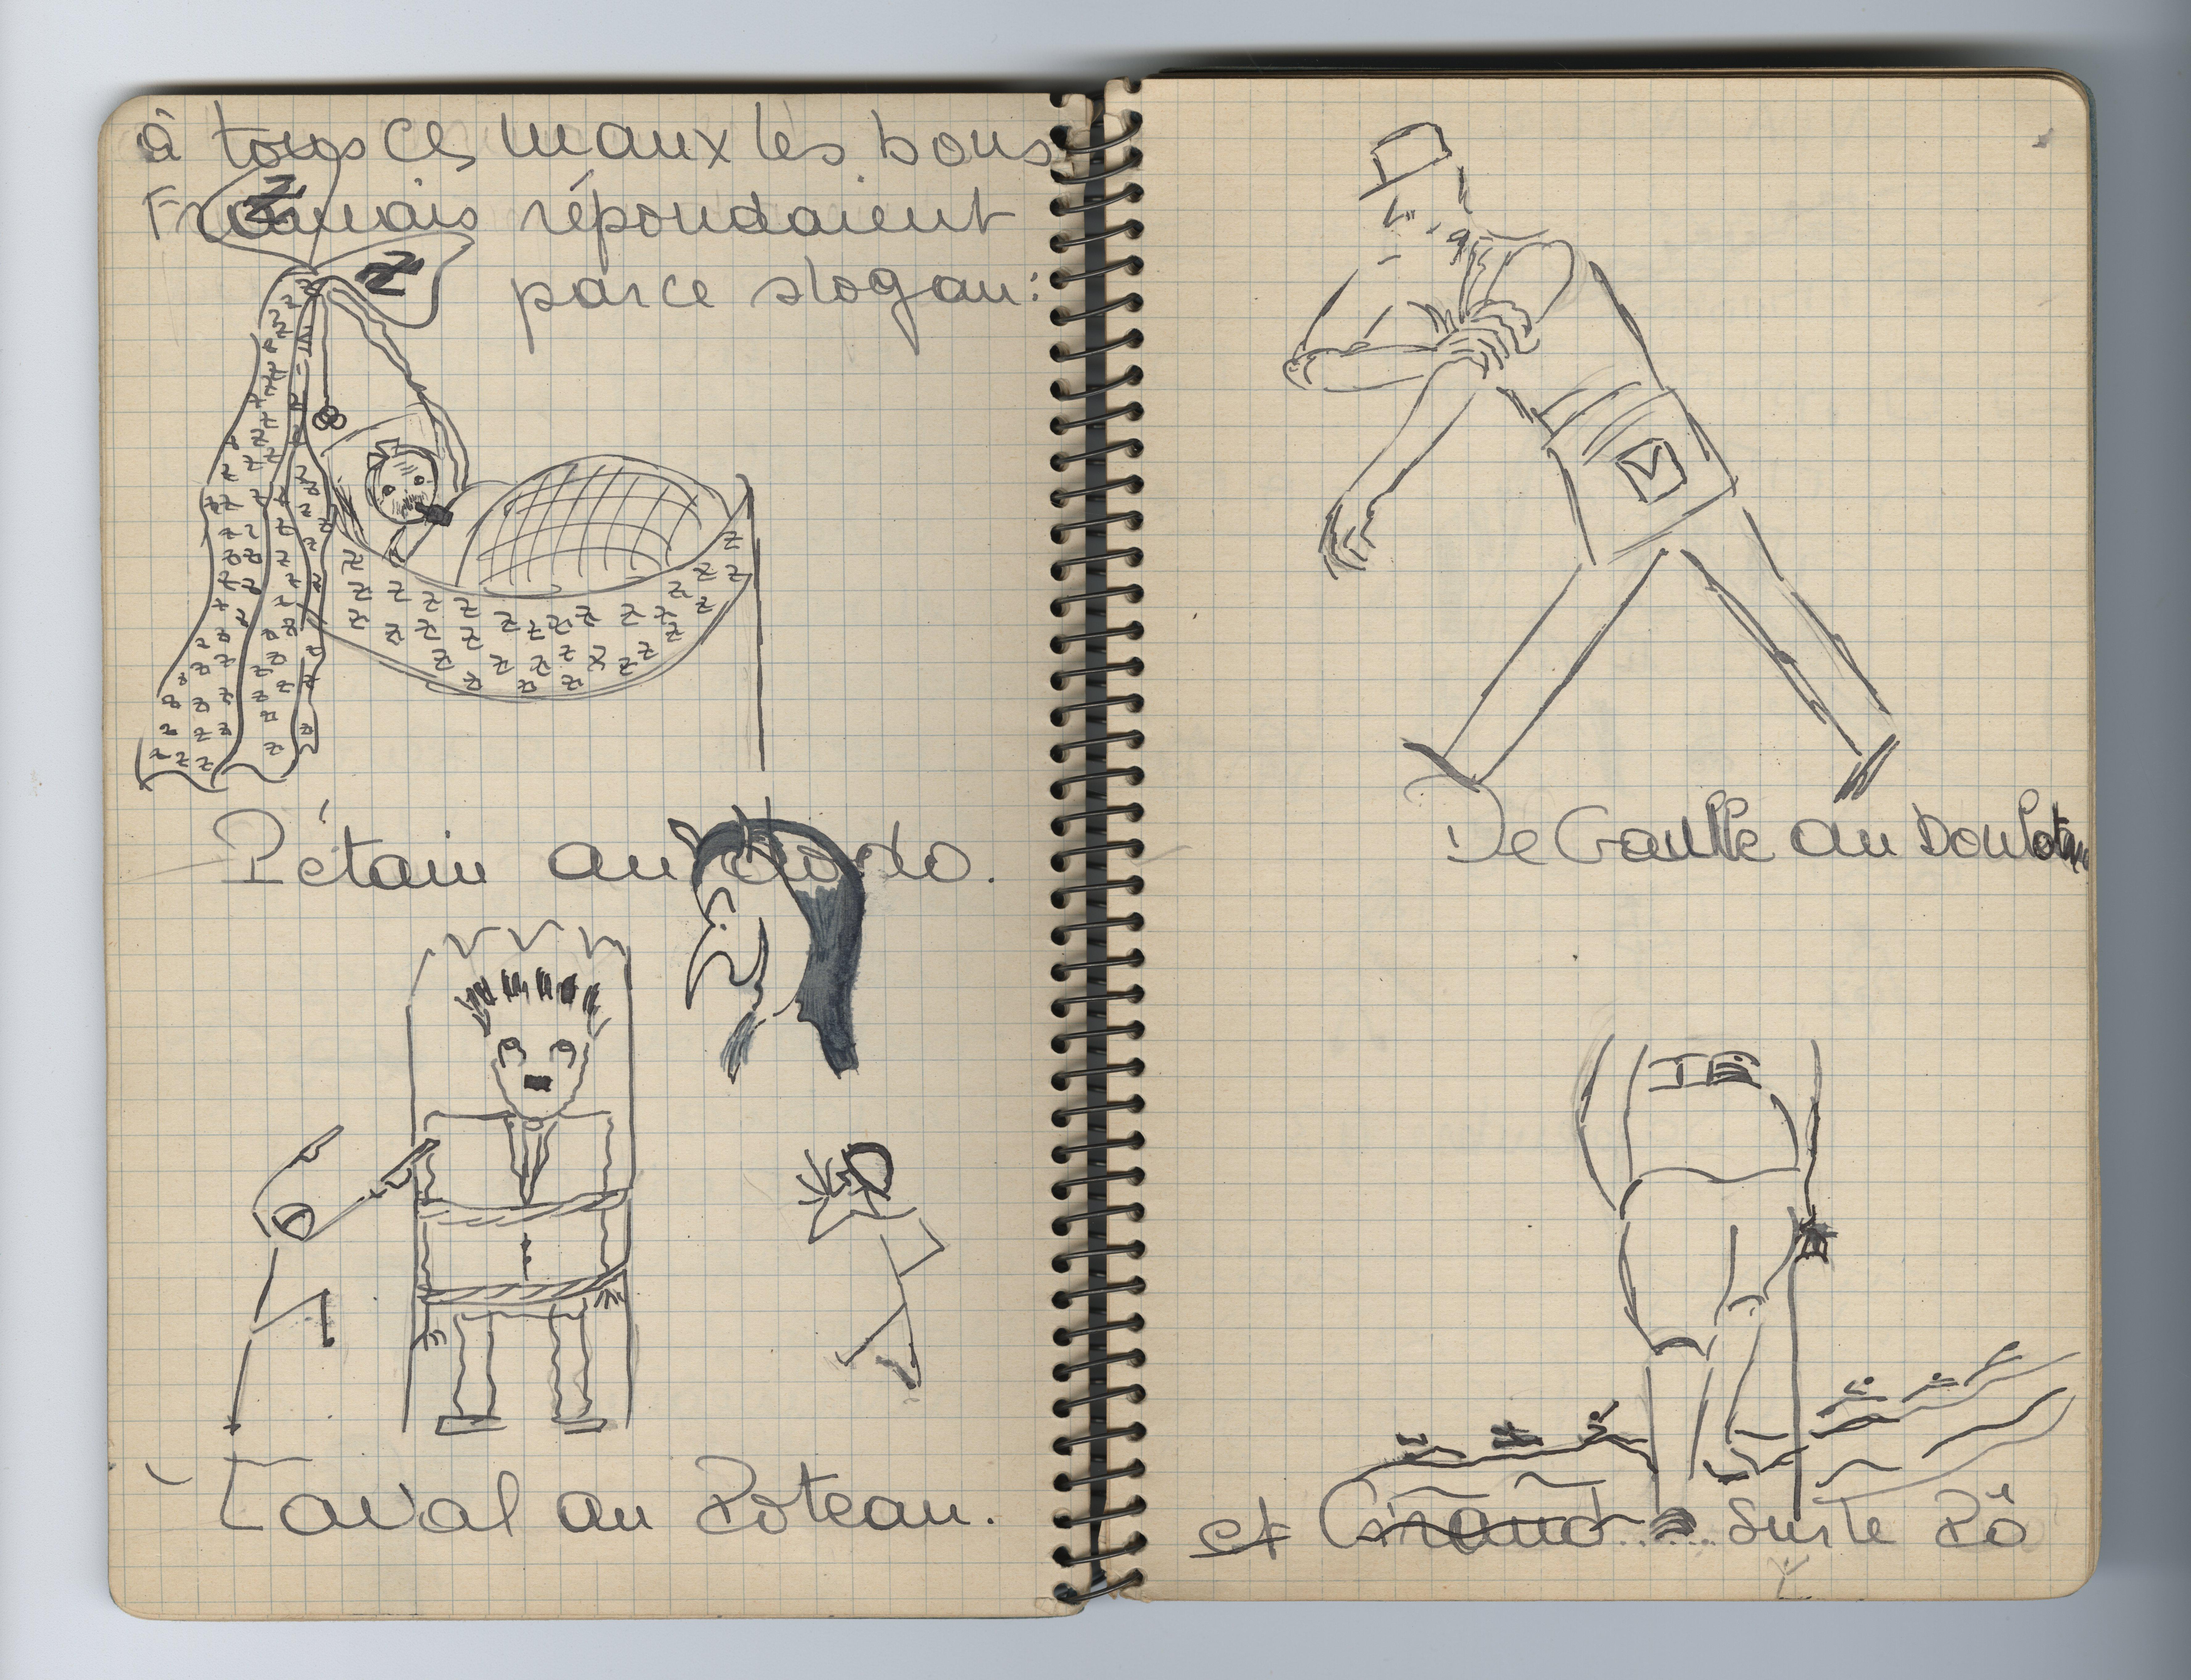 à tous ces maux les bons
Français répondaient
par ce slogan:
Pétain au dodo.
Laval au Poteau.
De Gaulle au Boulot
et Giraud...... sur le Pô